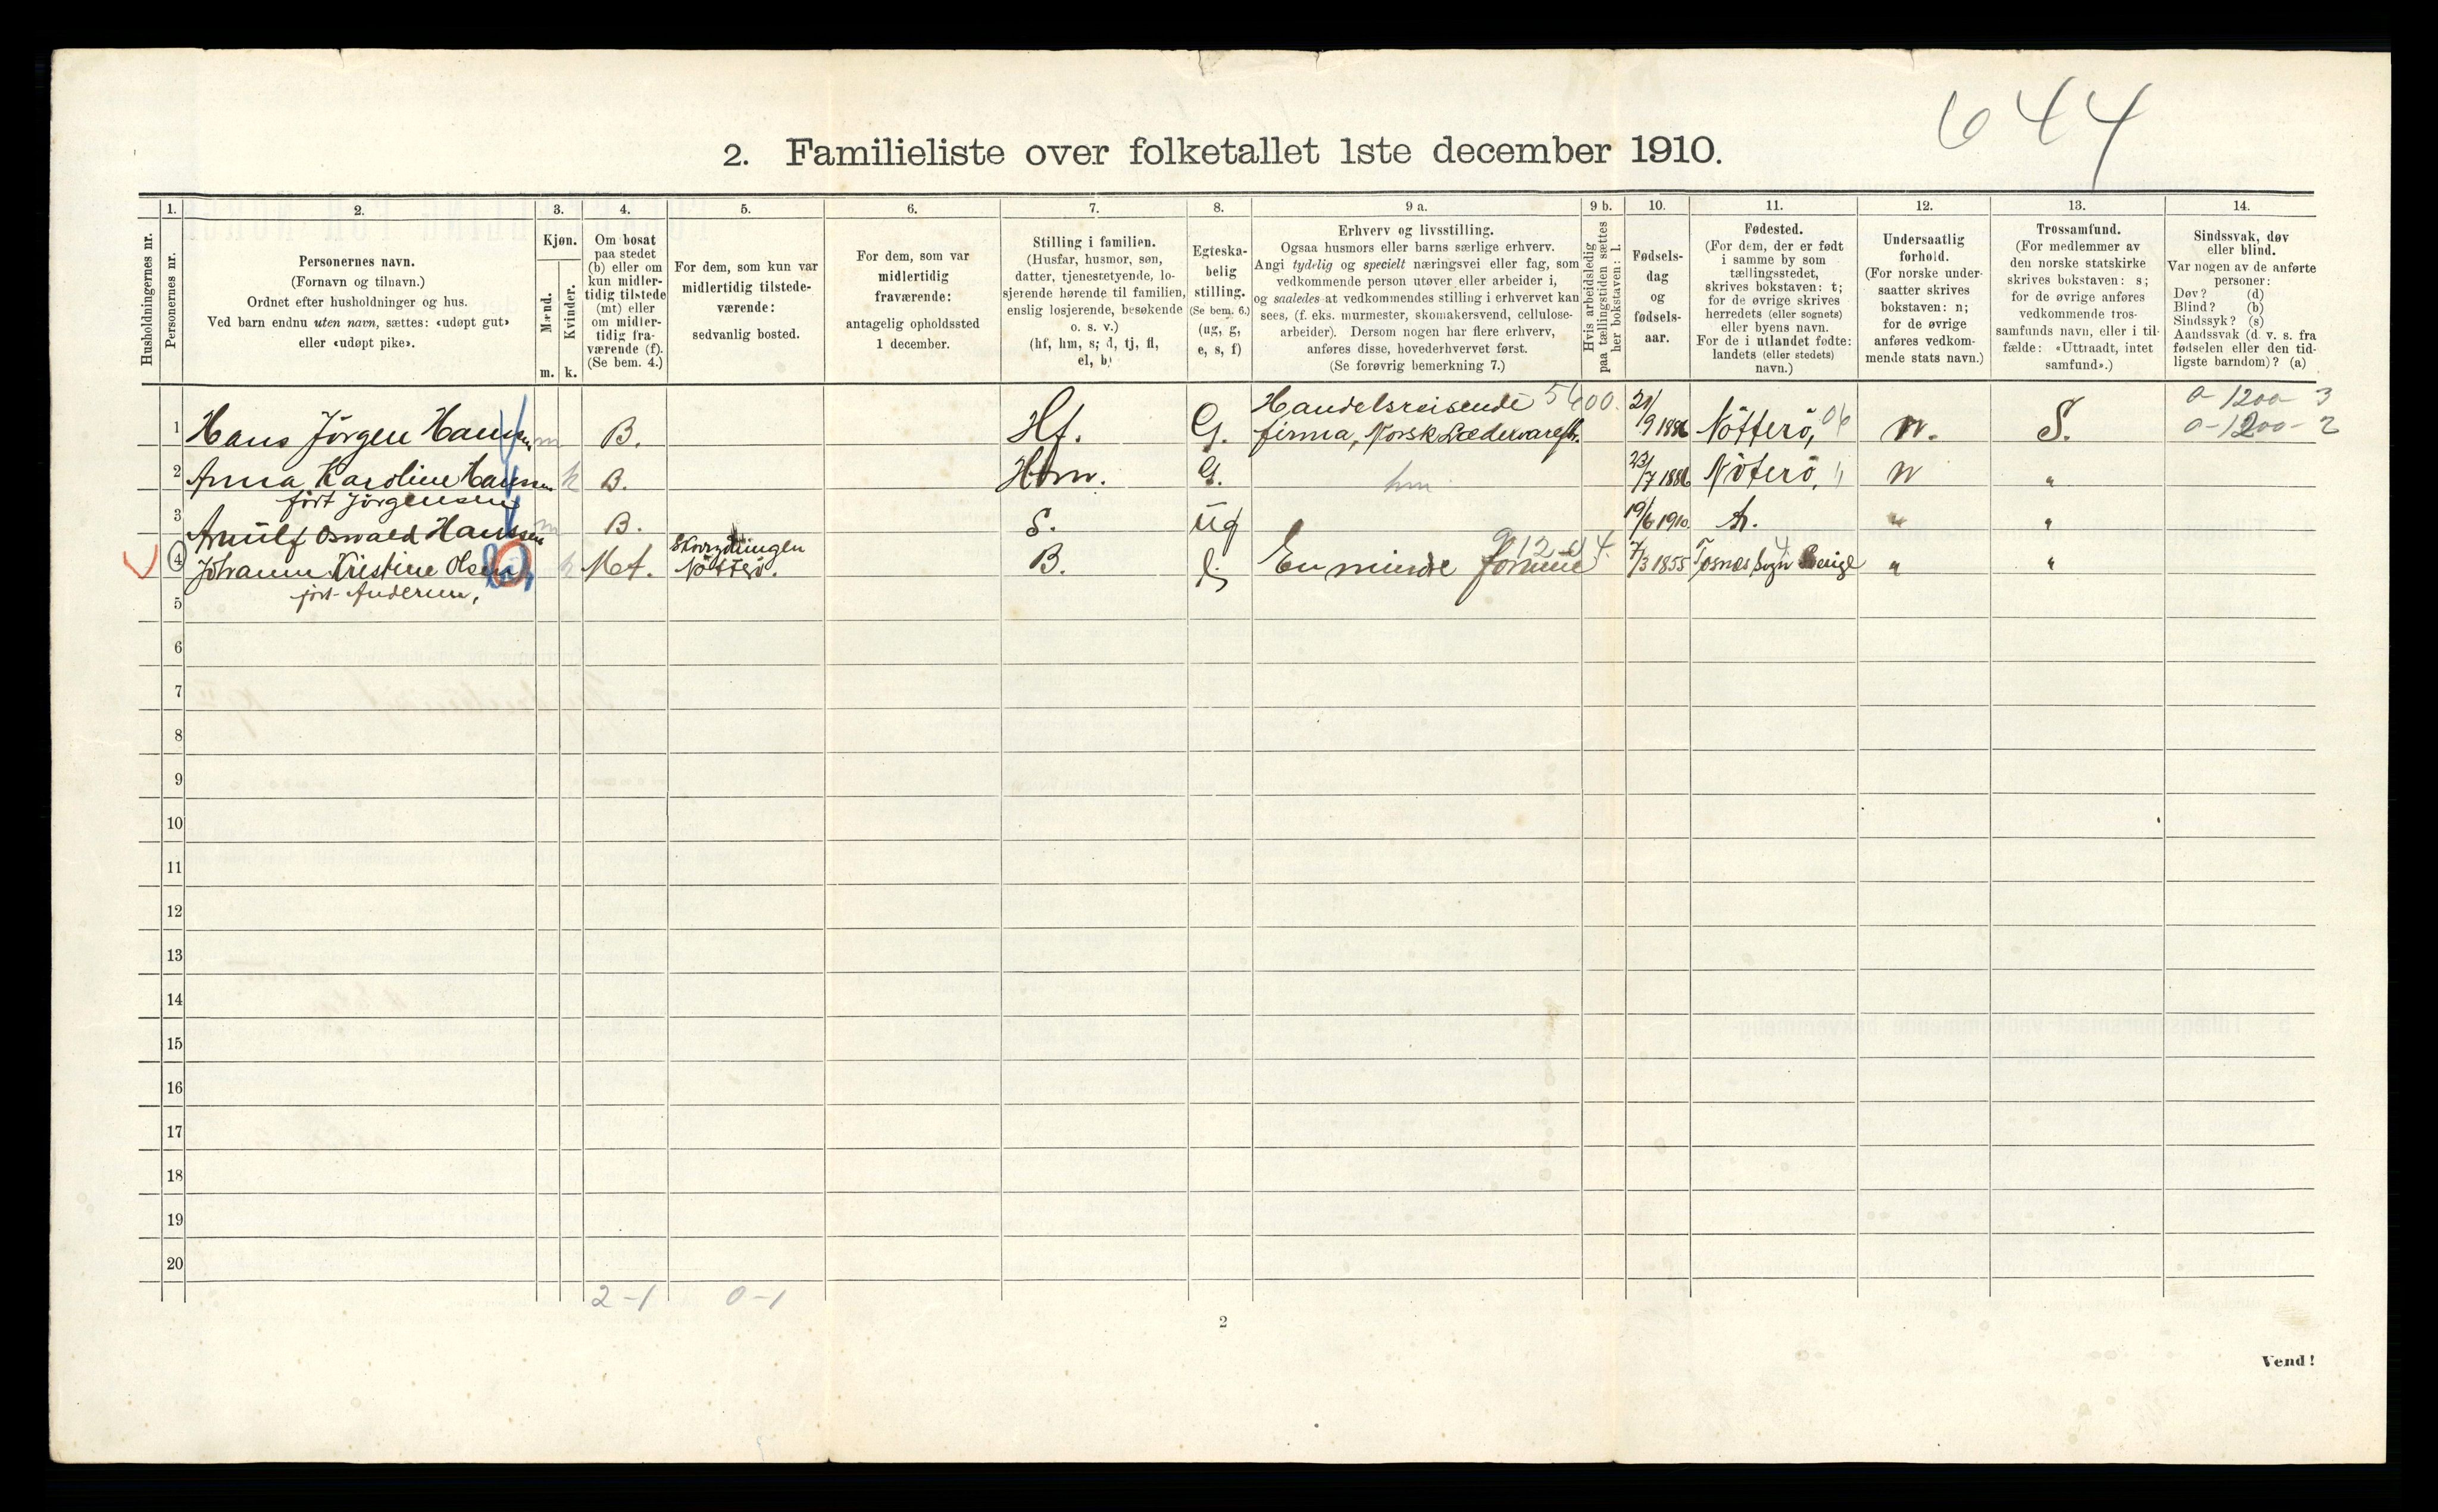 644
2. Familieliste over folketallet 1ste december 1910.
Husholdningernes nr.
1.
Personernes nr.
2.
Personernes navn.
(Fornavn og tilnavn.)
Ordnet efter husholdninger og hus.
Ved barn endnu uten navn, sættes: «udøpt gut»
eller «udøpt pike».
3.
Kjøn.
Mænd.
Kvinder.
m. k.
4.
Om bosat
paa stedet
(b) eller om
kun midler-
tidig tilstede
(mt) eller
om midler-
tidig fra-
værende (f).
(Se bem. 4.)
5.
For dem, som kun var
midlertidig tilstede-
værende:
sedvanlig bosted.
6.
For dem, som var
midlertidig
fraværende:
antagelig opholdssted
1 december.
7.
Stilling i familien.
(Husfar, husmor, søn,
datter, tjenestetyende, lo-
sjerende hørende til familien,
enslig losjerende, besøkende
o. s. v.)
(hf, hm, s; d, tj, fl,
el, b)
8.
Egteska-
belig
stilling.
(Se bem. 6.)
(ug, g,
e, s, f)
9 a.
Erhverv og livsstilling.
Ogsaa husmors eller barns særlige erhverv.
Angi tydelig og specielt næringsvei eller fag, som
vedkommende person utøver eller arbeider i,
og saaledes at vedkommendes stilling i erhvervet kan
sees, (f. eks. murmester, skomakersvend, cellulose-
arbeider). Dersom nogen har flere erhverv,
anføres disse, hovederhvervet først.
(Se forøvrig bemerkning 7.)
9 b.
Hvis arbeidsledig
paa tællingstiden sættes
her bokstaven: l.
10.
Fødsels-
dag
og
fødsels-
aar.
11.
Fødested.
(For dem, der er født
i samme by som
tællingsstedet,
skrives bokstaven: t;
for de øvrige skrives
herredets (eller sognets)
eller byens navn.
For de i utlandet fødte:
landets (eller stedets)
navn.)
12.
Undersaatlig
forhold.
(For norske under-
saatter skrives
bokstaven: n;
for de øvrige
anføres vedkom-
mende stats navn.)
13.
Trossamfund.
(For medlemmer av
den norske statskirke
skrives bokstaven: s;
for de øvrige anføres
vedkommende tros-
samfunds navn, eller i til-
fælde: «Uttraadt, intet
samfund».)
14.
Sindssvak, døv
eller blind.
Var nogen av de anførte
personer:
Døv? (d)
Blind? (b)
Sindssyk? (s)
Aandssvak (d. v. s. fra
fødselen eller den tid-
ligste barndom)? (a)
1 Hans Jörgen Hansen m B. Hf. G. Handelsreisende 5600. 21/9 1886 Nötterö, 06 n. S. 0-1200-3
firma, Norsk Lædervarefb. 0-1200-2
2 Anna Karoline Hansen k B. Hm. G. hm 23/7 1886 Nöterö, " n "
fört Jörgensen
3 Arnülf Oswald Hanssen m B. S. üg 19/6 1910 t. " "
4 Johanne Kristine Olsen k Mt. Skovrydningen B. En mindre formue 7/3 1855 Tosnes Sogn Sverige " "
Nötterö.
fört Andersen,
5
6
7
8
9
10
11
12
13
14
15
16
17
18
19
20
2-1 0-1
2
Vend!